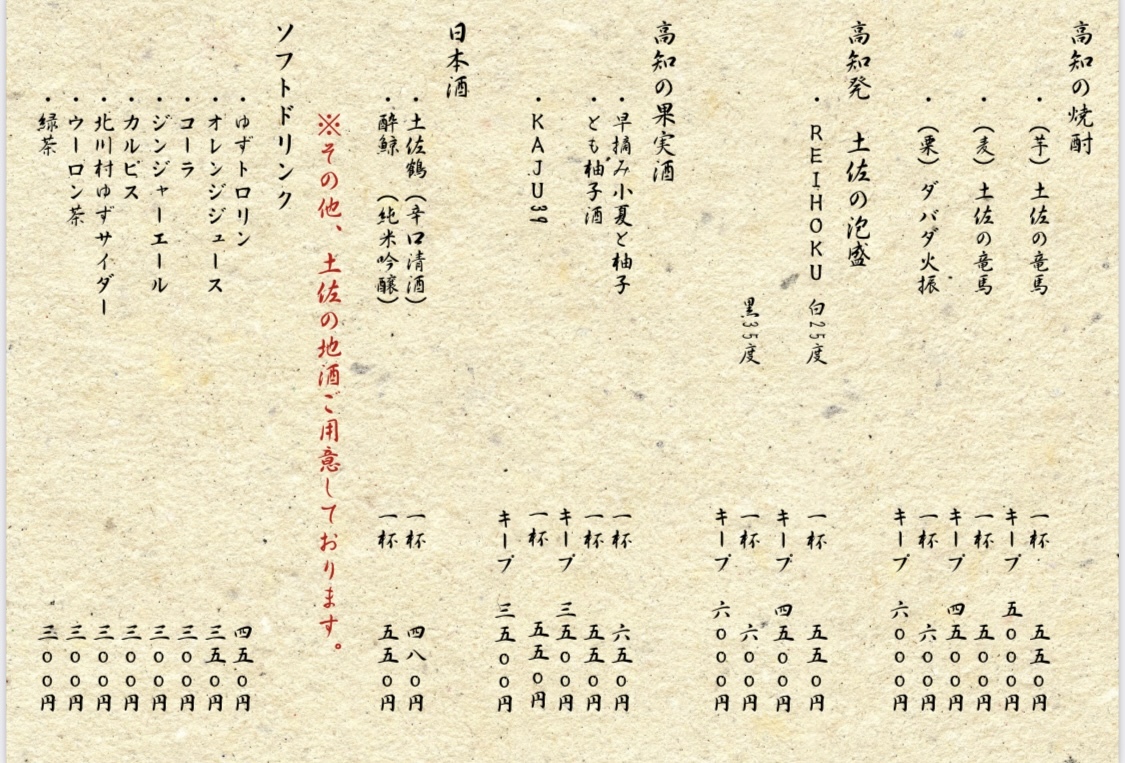 高知の焼酎
・(芋) 土佐の竜馬 一杯 五五〇円
キープ 五〇〇〇円
・(麦) 土佐の竜馬 一杯 五〇〇円
キープ 四五〇〇円
・(栗) ダバダ火振 一杯 六〇〇円
キープ 六〇〇〇円
高知発 土佐の泡盛
・REIHOKU 白25度 一杯 五五〇円
キープ 四五〇〇円
黒35度 一杯 六〇〇円
キープ 六〇〇〇円
高知の果実酒
・早摘み小夏と柚子 一杯 六五〇円
・とも柚子酒 一杯 五五〇円
キープ 三五〇〇円
・KAJU39 一杯 五五〇円
キープ 三五〇〇円
日本酒
・土佐鶴 (辛口清酒) 一杯 四八〇円
・酔鯨 (純米吟醸) 一杯 五五〇円
※その他、土佐の地酒ご用意しております。
ソフトドリンク
・ゆずトロリン 四五〇円
・オレンジジュース 三五〇円
・コーラ 三〇〇円
・ジンジャーエール 三〇〇円
・カルピス 三〇〇円
・北川村ゆずサイダー 三〇〇円
・ウーロン茶 三〇〇円
・緑茶 三〇〇円